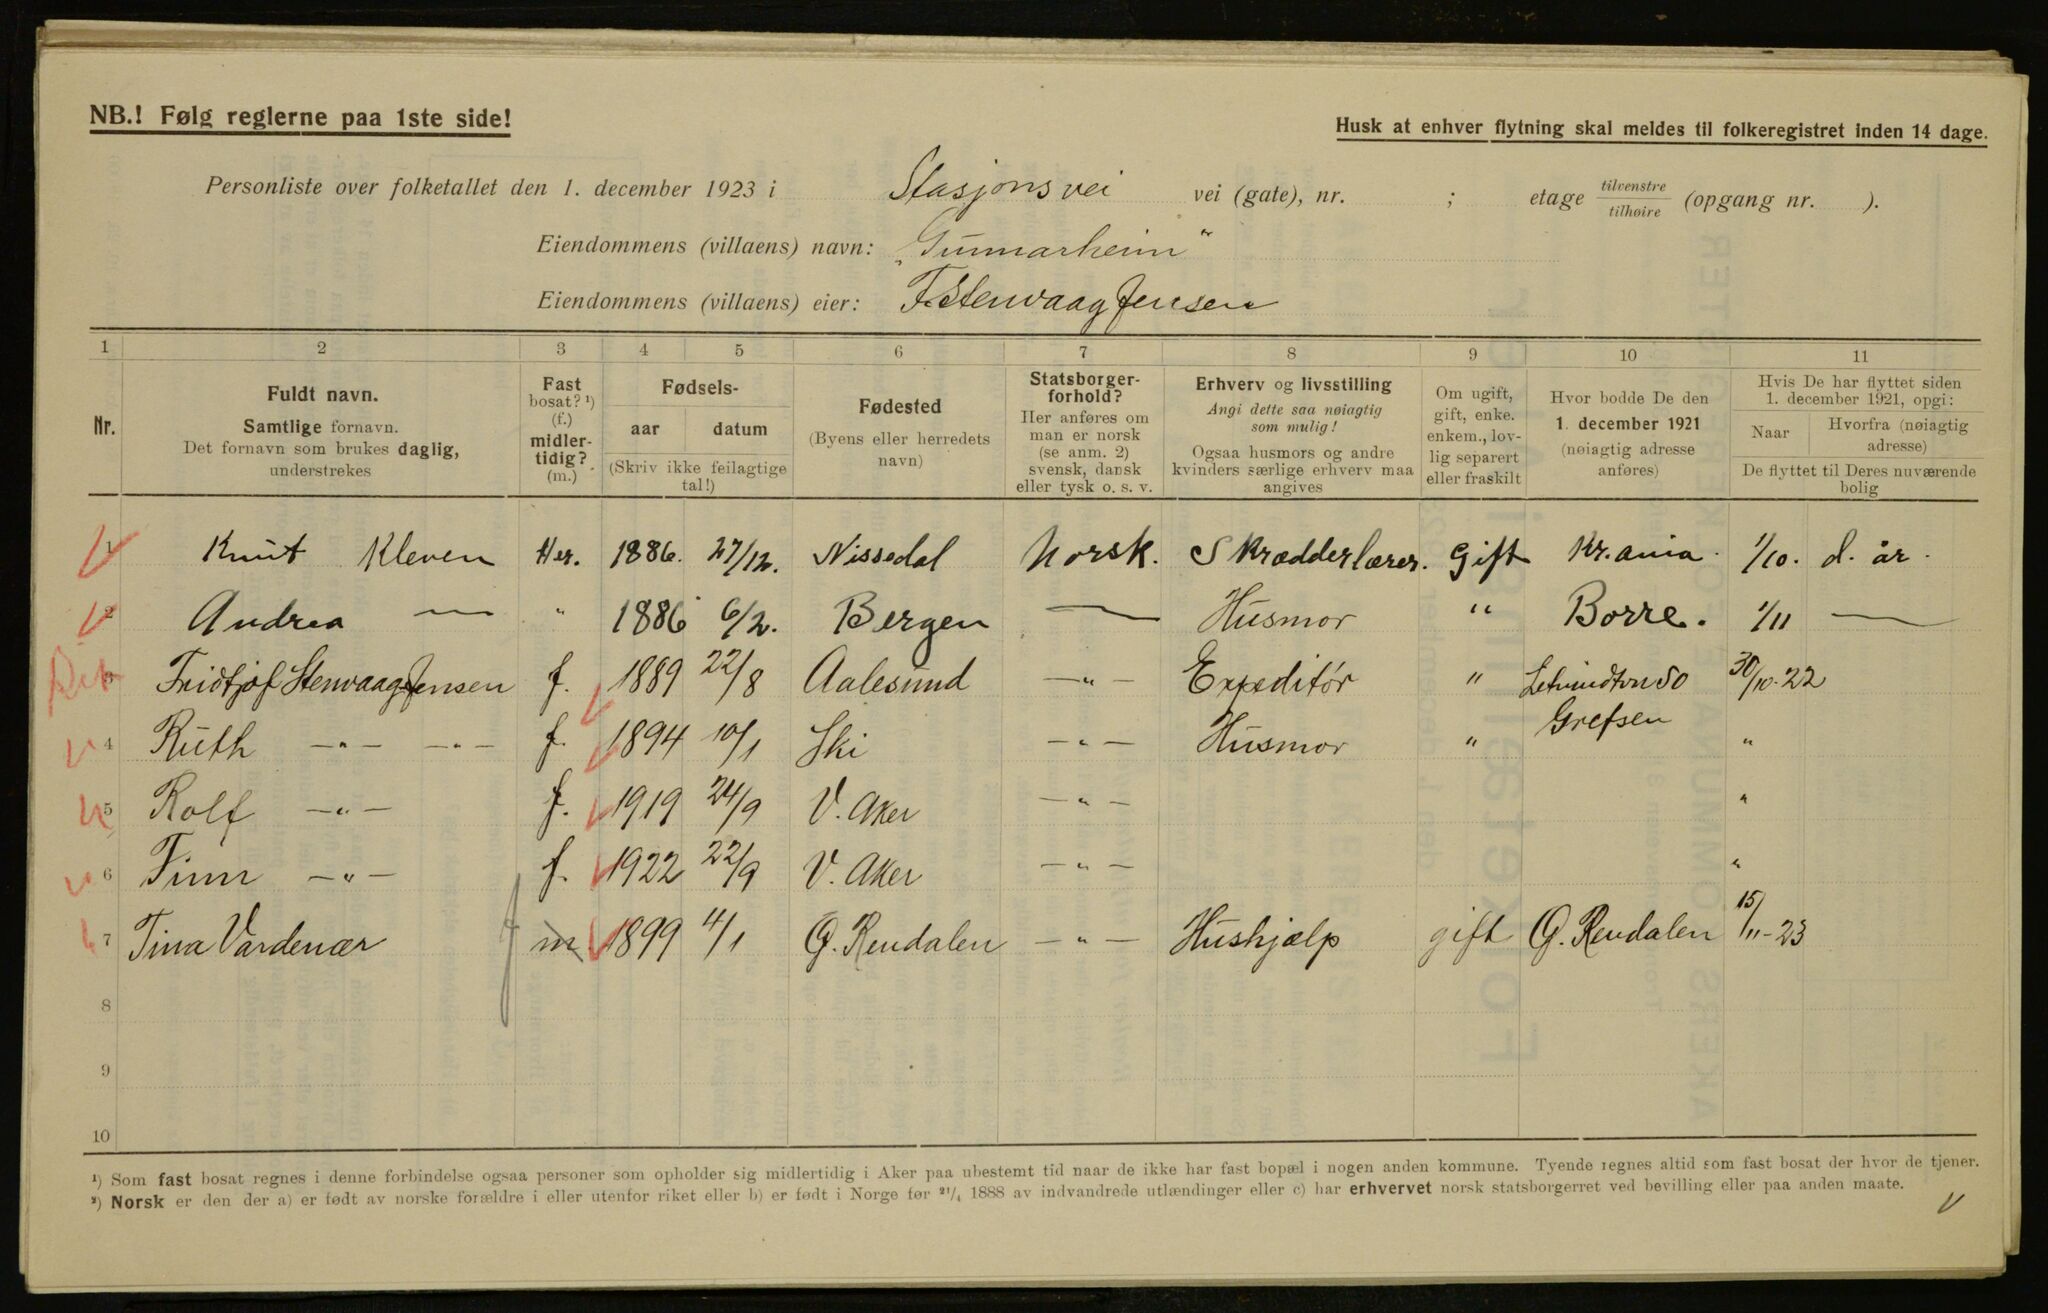 NB.! Følg reglerne paa 1ste side!
Husk at enhver flytning skal meldes til folkeregistret inden 14 dage.
Personliste over folketallet den 1. december 1923 i Stasjonsvei vei (gate), nr. ; etage tilvenstre/tilhøire (opgang nr. ).
Eiendommens (villaens) navn: „Gunnarheim"
Eiendommens (villaens) eier: F. Stenvaag Jensen
1 2 3 4 5 6 7 8 9 10 11
Nr.
Fuldt navn.
Samtlige fornavn.
Det fornavn som brukes daglig,
understrekes
Fast
bosat? ¹)
(f.)
midler-
tidig?
(m.)
Fødsels-
aar datum
(Skriv ikke feilagtige
tal!)
Fødested
(Byens eller herredets
navn)
Statsborger-
forhold?
Her anføres om
man er norsk
(se anm. 2)
svensk, dansk
eller tysk o. s. v.
Erhverv og livsstilling
Angi dette saa nøiagtig
som mulig!
Ogsaa husmors og andre
kvinders særlige erhverv maa
angives
Om ugift,
gift, enke.
enkem., lov-
lig separert
eller fraskilt
Hvor bodde De den
1. december 1921
(nøiagtig adresse
anføres)
Hvis De har flyttet siden
1. december 1921, opgi:
Naar Hvorfra (nøiagtig
adresse)
De flyttet til Deres nuværende
bolig
1 Knut Kleven Her. 1886. 27/12. Nissedal Norsk. Skrædderlærer. Gift Kr.ania. 1/10. d. år.
2 Andrea — " 1886 6/2. Bergen — Husmor " Borre. 1/11 —
3 Fridtjof Stenvaag Jensen f. 1889 22/8 Aalesund —"— Expeditör " 50 30/10-22
Grefsen
4 Ruth —"— —"— f. 1894 10/1 Ski —"— Husmor " "
5 Rolf —"— f. 1919 24/9 V. Aker —"— "
6 Finn —"— f. 1922 22/9 V. Aker —"— "
7 Tina Vardenær f m 1899 4/1 Ø. Rendalen —"— Hushjælp gift Ø. Rendalen 15/11-23
8
9
10
¹) Som fast bosat regnes i denne forbindelse ogsaa personer som opholder sig midlertidig i Aker paa ubestemt tid naar de ikke har fast bopæl i nogen anden kommune. Tyende regnes altid som fast bosat der hvor de tjener.
²) Norsk er den der a) er født av norske forældre i eller utenfor riket eller b) er født i Norge før ²¹/₄ 1888 av indvandrede utlændinger eller c) har erhvervet norsk statsborgerret ved bevilling eller paa anden maate.